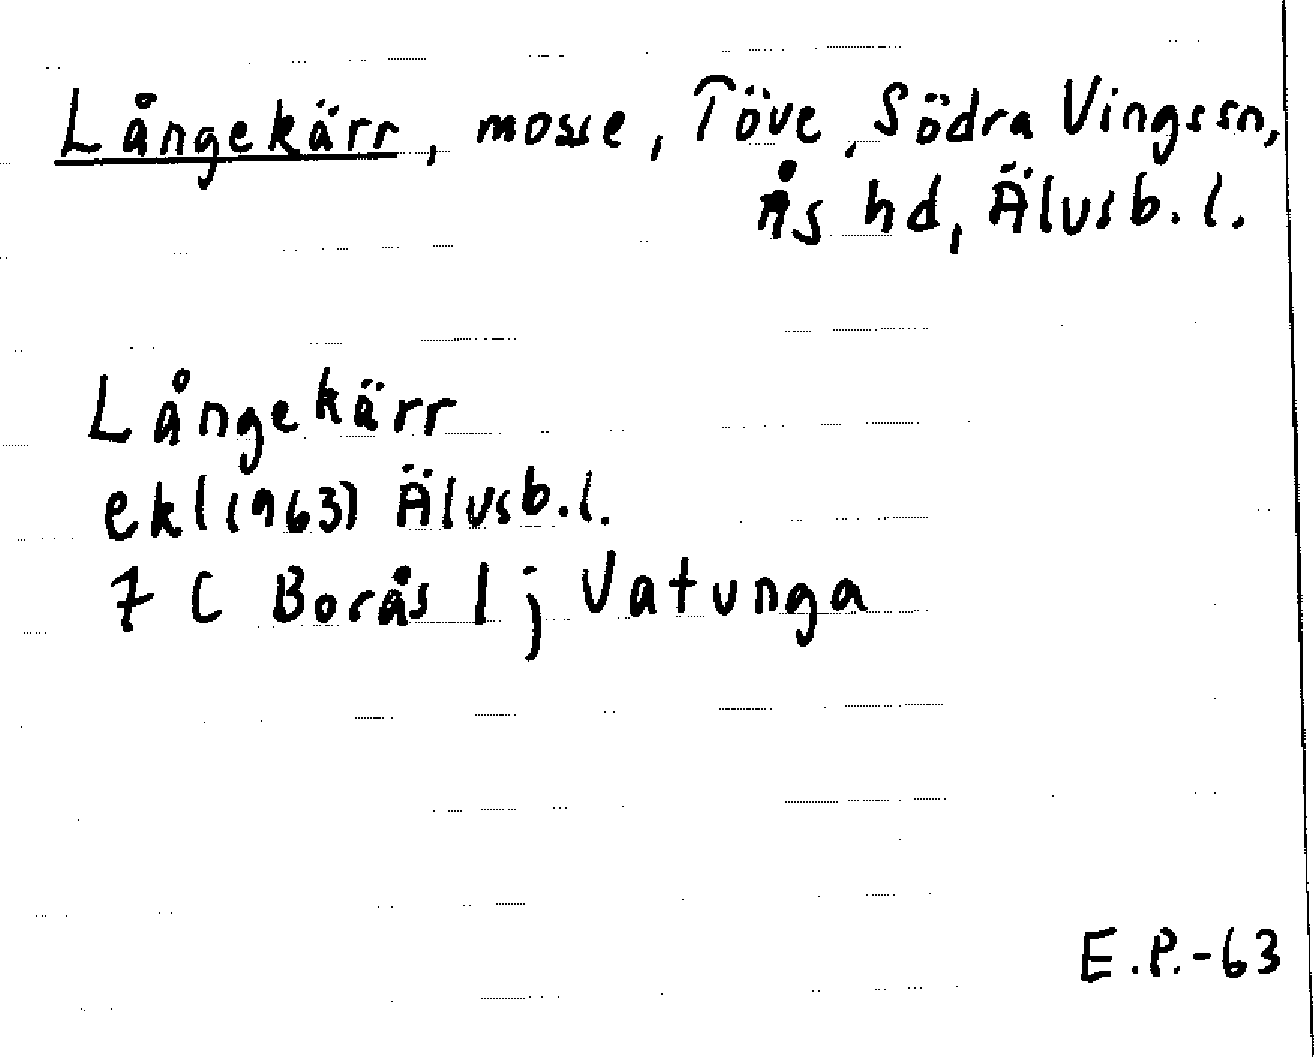 Långekärr, mosse, Töve, Södra Vings sn,
Ås hd, Älvsb. l.
Långekärr
ekl (1963) Älvsb. l.
7 C Borås 1 j Vatunga
E.P.-63